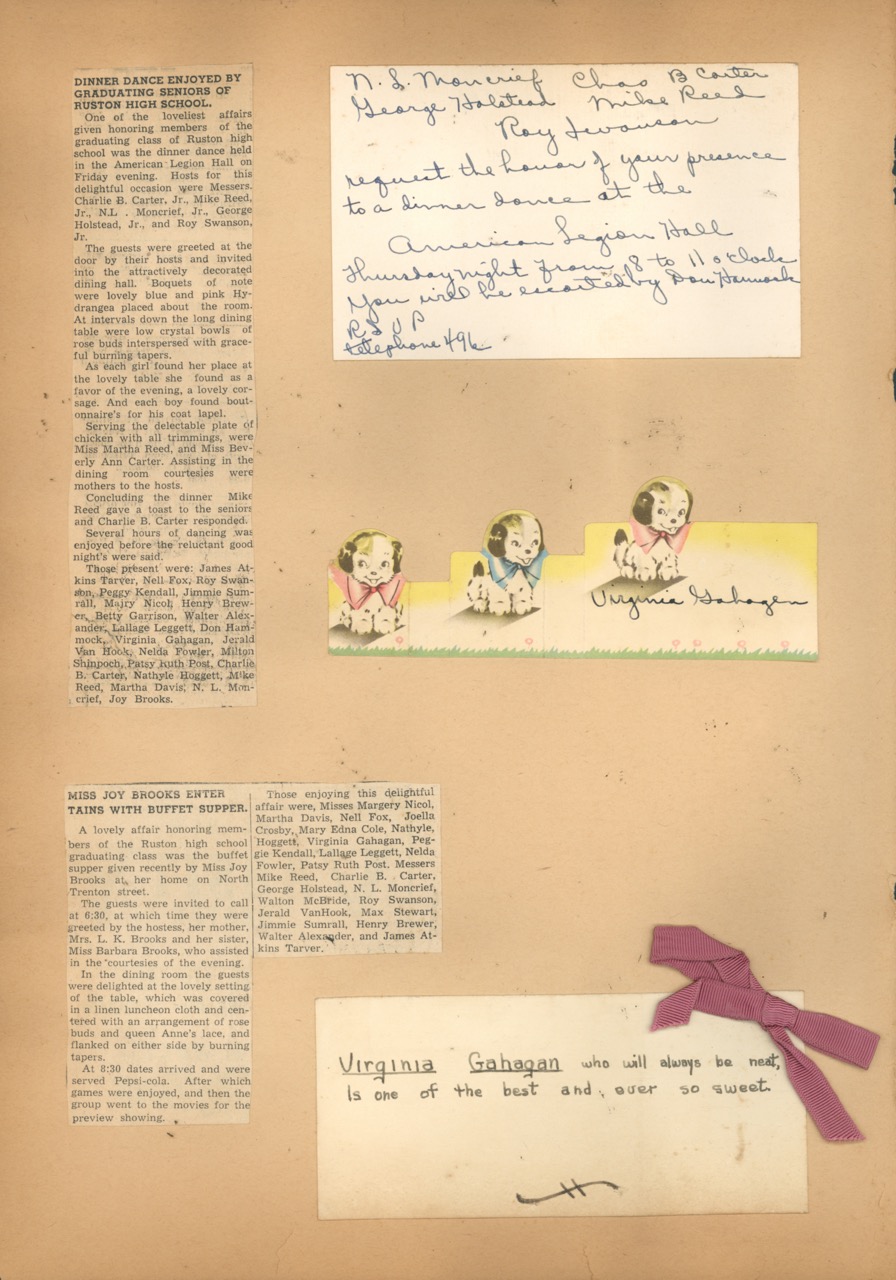 DINNER DANCE ENJOYED BY
GRADUATING SENIORS OF
RUSTON HIGH SCHOOL.
One of the loveliest affairs
given honoring members of the
graduating class of Ruston high
school was the dinner dance held
in the American Legion Hall on
Friday evening. Hosts for this
delightful occasion were Messers.
Charlie B. Carter, Jr., Mike Reed,
Jr., N.L . Moncrief, Jr., George
Holstead, Jr., and Roy Swanson,
Jr.
The guests were greeted at the
door by their hosts and invited
into the attractively decorated
dining hall. Boquets of note
were lovely blue and pink Hy-
drangea placed about the room.
At intervals down the long dining
table were low crystal bowls of
rose buds interspersed with grace-
ful burning tapers.
As each girl found her place at
the lovely table she found as a
favor of the evening, a lovely cor-
sage. And each boy found bout-
onnaire's for his coat lapel.
Serving the delectable plate of
chicken with all trimmings, were
Miss Martha Reed, and Miss Bev-
erly Ann Carter. Assisting in the
dining room courtesies were
mothers to the hosts.
Concluding the dinner Mike
Reed gave a toast to the seniors
and Charlie B. Carter responded.
Several hours of dancing was
enjoyed before the reluctant good
night's were said.
Those present were: James At-
kins Tarver, Nell Fox, Roy Swan-
son, Peggy Kendall, Jimmie Sum-
rall, Majry Nicol, Henry Brew-
er, Betty Garrison, Walter Alex-
ander, Lallage Leggett, Don Ham-
mock, Virginia Gahagan, Jerald
Van Hook, Nelda Fowler, Milton
Shinpoch, Patsy Ruth Post, Charlie
B. Carter, Nathyle Hoggett, Mike
Reed, Martha Davis, N. L. Mon-
crief, Joy Brooks.
N. L. Moncrief Chas B Carter
George Holstead Mike Reed
Roy Swanson
request the honor of your presence
to a dinner dance at the
American Legion Hall
Thursday night from 8 to 11 o'clock
You will be escorted by Don Hammock
R S V P
telephone 496
Virginia Gahagen
MISS JOY BROOKS ENTER
TAINS WITH BUFFET SUPPER.
A lovely affair honoring mem-
bers of the Ruston high school
graduating class was the buffet
supper given recently by Miss Joy
Brooks at her home on North
Trenton street.
The guests were invited to call
at 6:30, at which time they were
greeted by the hostess, her mother,
Mrs. L. K. Brooks and her sister,
Miss Barbara Brooks, who assisted
in the courtesies of the evening.
In the dining room the guests
were delighted at the lovely setting
of the table, which was covered
in a linen luncheon cloth and cen-
tered with an arrangement of rose
buds and queen Anne's lace, and
flanked on either side by burning
tapers.
At 8:30 dates arrived and were
served Pepsi-cola. After which
games were enjoyed, and then the
group went to the movies for the
preview showing.
Those enjoying this delightful
affair were, Misses Margery Nicol,
Martha Davis, Nell Fox, Joella
Crosby, Mary Edna Cole, Nathyle,
Hoggett, Virginia Gahagan, Peg-
gie Kendall, Lallage Leggett, Nelda
Fowler, Patsy Ruth Post. Messers
Mike Reed, Charlie B. Carter,
George Holstead, N. L. Moncrief,
Walton McBride, Roy Swanson,
Jerald VanHook, Max Stewart,
Jimmie Sumrall, Henry Brewer,
Walter Alexander, and James At-
kins Tarver.
Virginia Gahagan who will always be neat,
Is one of the best and ever so sweet.